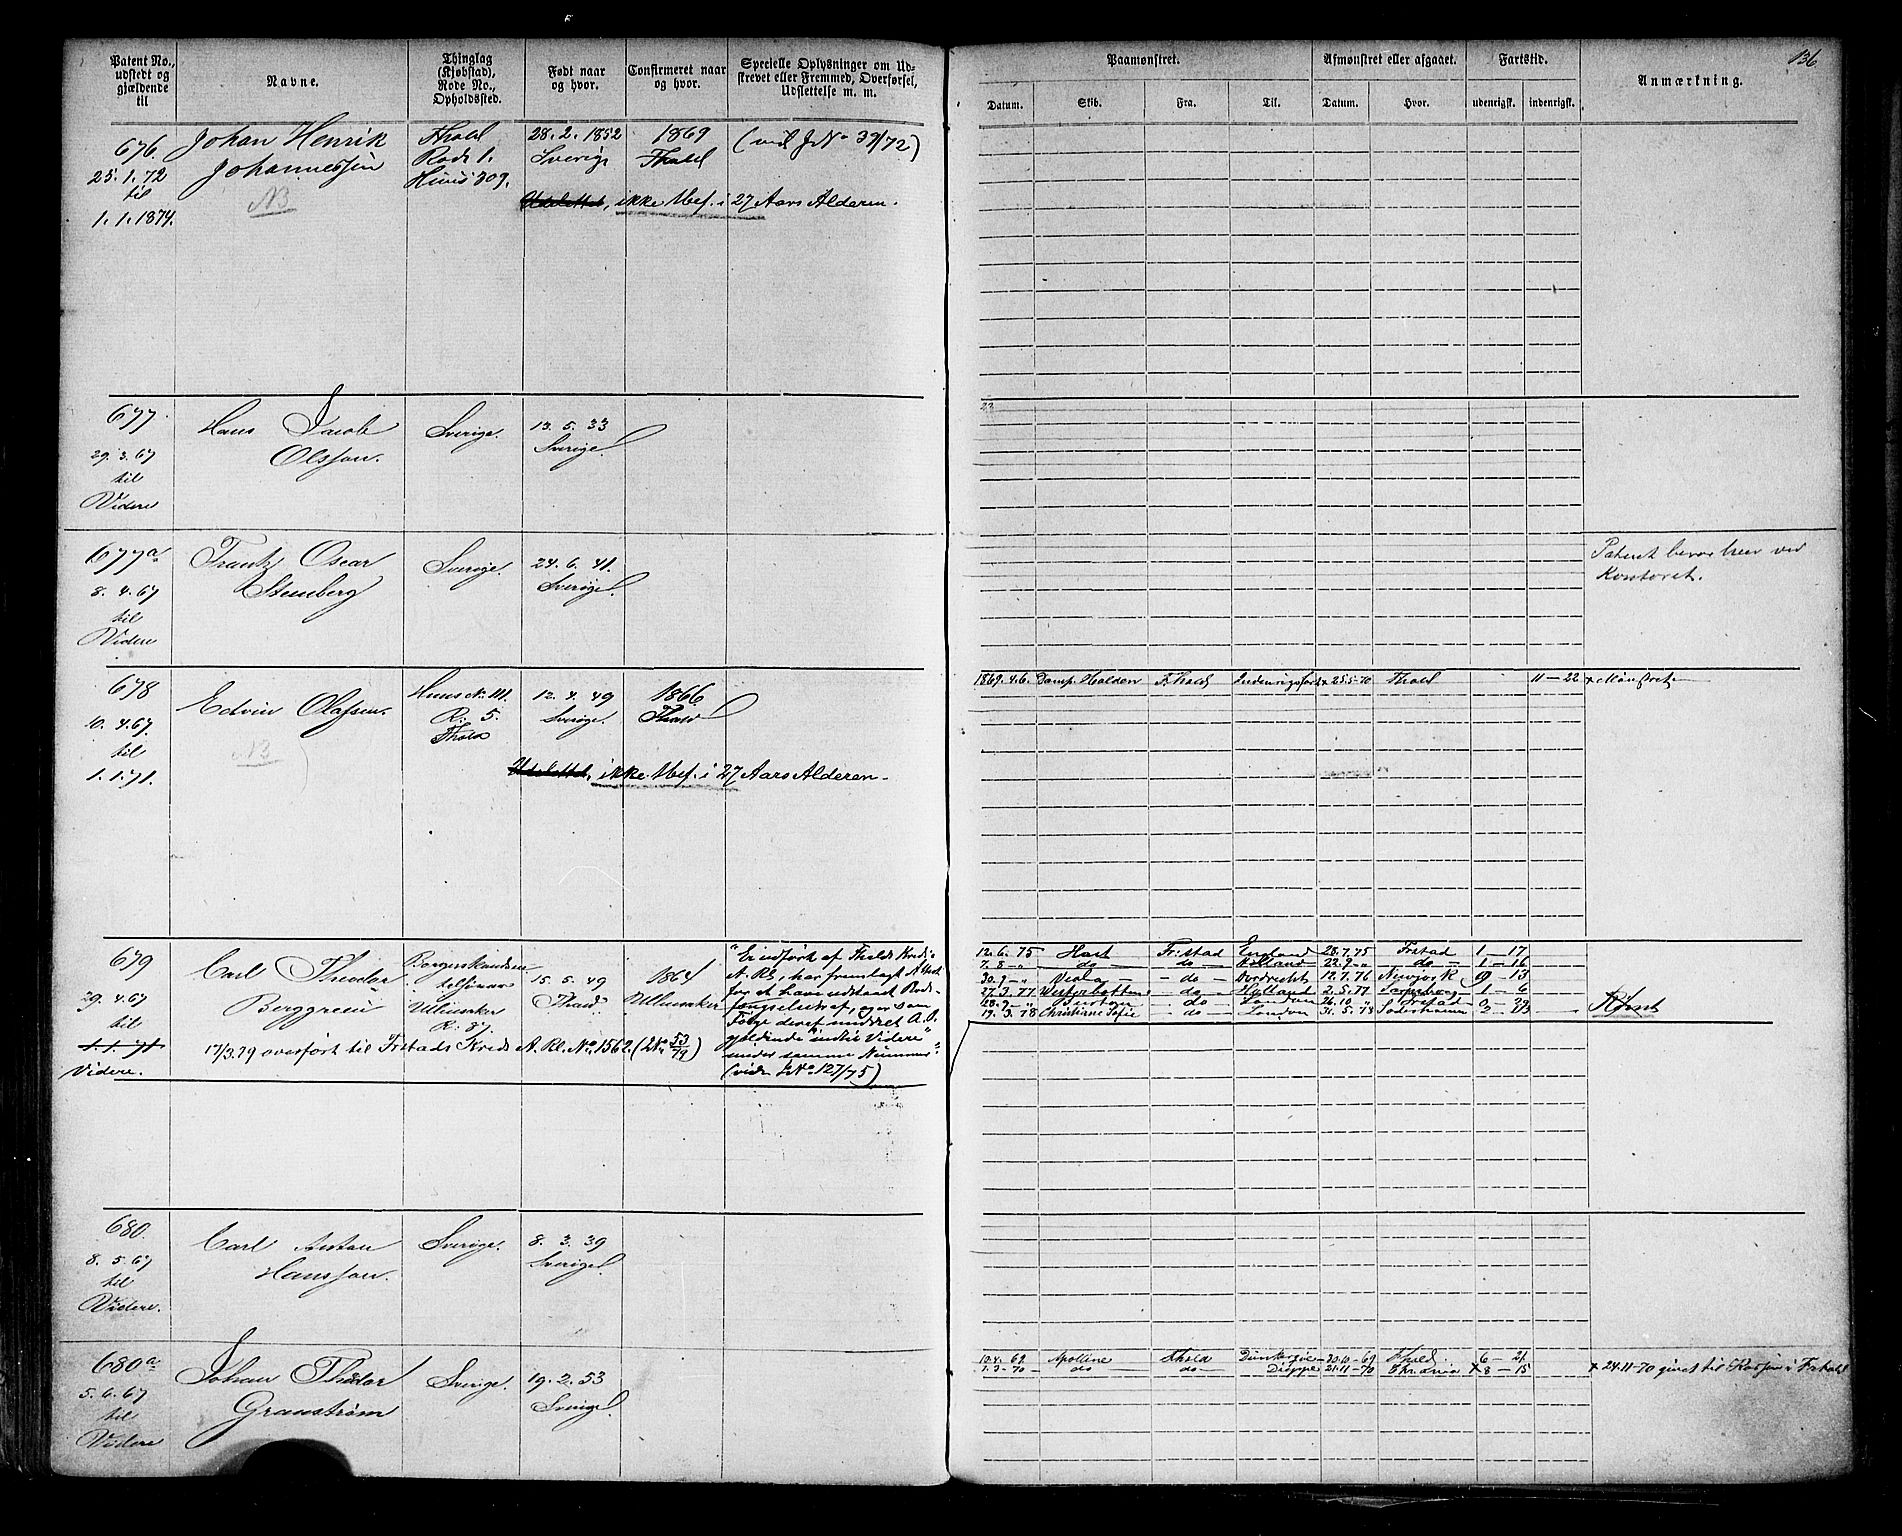 136
Patent No., udstedt og gjældende til
Navne.
Thinglag (Kjøbstad), Rode No., Opholdssted.
Født naar og hvor.
Confirmeret naar og hvor.
Specielle Oplysninger om Udskrevet eller Fremmed, Overførsel, Udslettelse m. m.
Paamønstret.
Afmønstret eller afgaaet.
Fartstid.
Anmærkning.
Datum.
Skib.
Fra.
Til.
Datum.
Hvor.
udenrigsk.
indenrigsk.
676.
25.1.72
til
1.1.1874.
Johan Henrik
Johannessen
NB
Fhald
Rode 1.
Huus 309.
28.2.1852
Sverige
1869
Fhald
(vid J.No 39/72)
Udslettet, ikke Mef. i 27 Aars Alderen.
677.
29.3.67
til
Videre
Hans Jacob
Olsson.
Sverige.
13.5.33
Sverige
677a
8.4.67
til
Videre
Frantz Oscar
Stenberg
Sverige.
24.6.41.
Sverige
Patent beroe her ved
Kontoret.
678
10.4.67
til
1.1.71.
Edvin Olafsen.
NB
Huus No. 111.
R. 5.
Fhald
12.4.49
Sverige.
1866
Fhald
Udslettet, ikke Mef. i 27 Aars Alderen.
1869.4.6. Damp. Halden Fhald Indenrigsfart x 25.5.70 Fhald 11-22 x Mønstret
679
29.4.67
til
1.1.71
Videre.
Carl Theodor
Berggreen
Ullensaker
R. 37.
15.5.49
Fhald
1864
Ullensaker
"Er indført af Fhalds Kreds
A. Rl., har fremlagt Attest
for at have udstaaet
Fængselsstraf, og er som
Følge deraf meddelt A. P.
gjeldende indtil Videre
under samme Nummer"
(vide J.No 127/75)
17/3.79 overført til Frstads Kreds A. Rl. No. 1562. (J.No 53/79)
12.6.75 Hast Fr.stad England 28.7.75 Frstad 1-17
7.8-" do do Holland 22.9- do- 1-16
30.9-" - do Dordrecht 12.7.76 Newjork 9 13
27.3.77 Westerbotten - do Holland 2.5.77 Sarpsborg 1-6
28.9-" do London 26.10 " Frstad 0-29
19.3.78 Christiane Sofie - do London 31.5.78 Söderhamn 2-13
680.
8.5.67
til
Videre.
Carl Anton
Hansson.
Sverige.
8.3.39
Sverige
680a
5.6.67
til
Videre
Johan Thedor
Granstrøm
Sverige.
19.2.53
Sverige
10.4.69 Apolline Fhald Dünkerque 30.10-69 Fhald. 6-21
1.3-70 do do Dieppe 21.11-70 x 8-15
x 24.11-70 givet til i Frhald